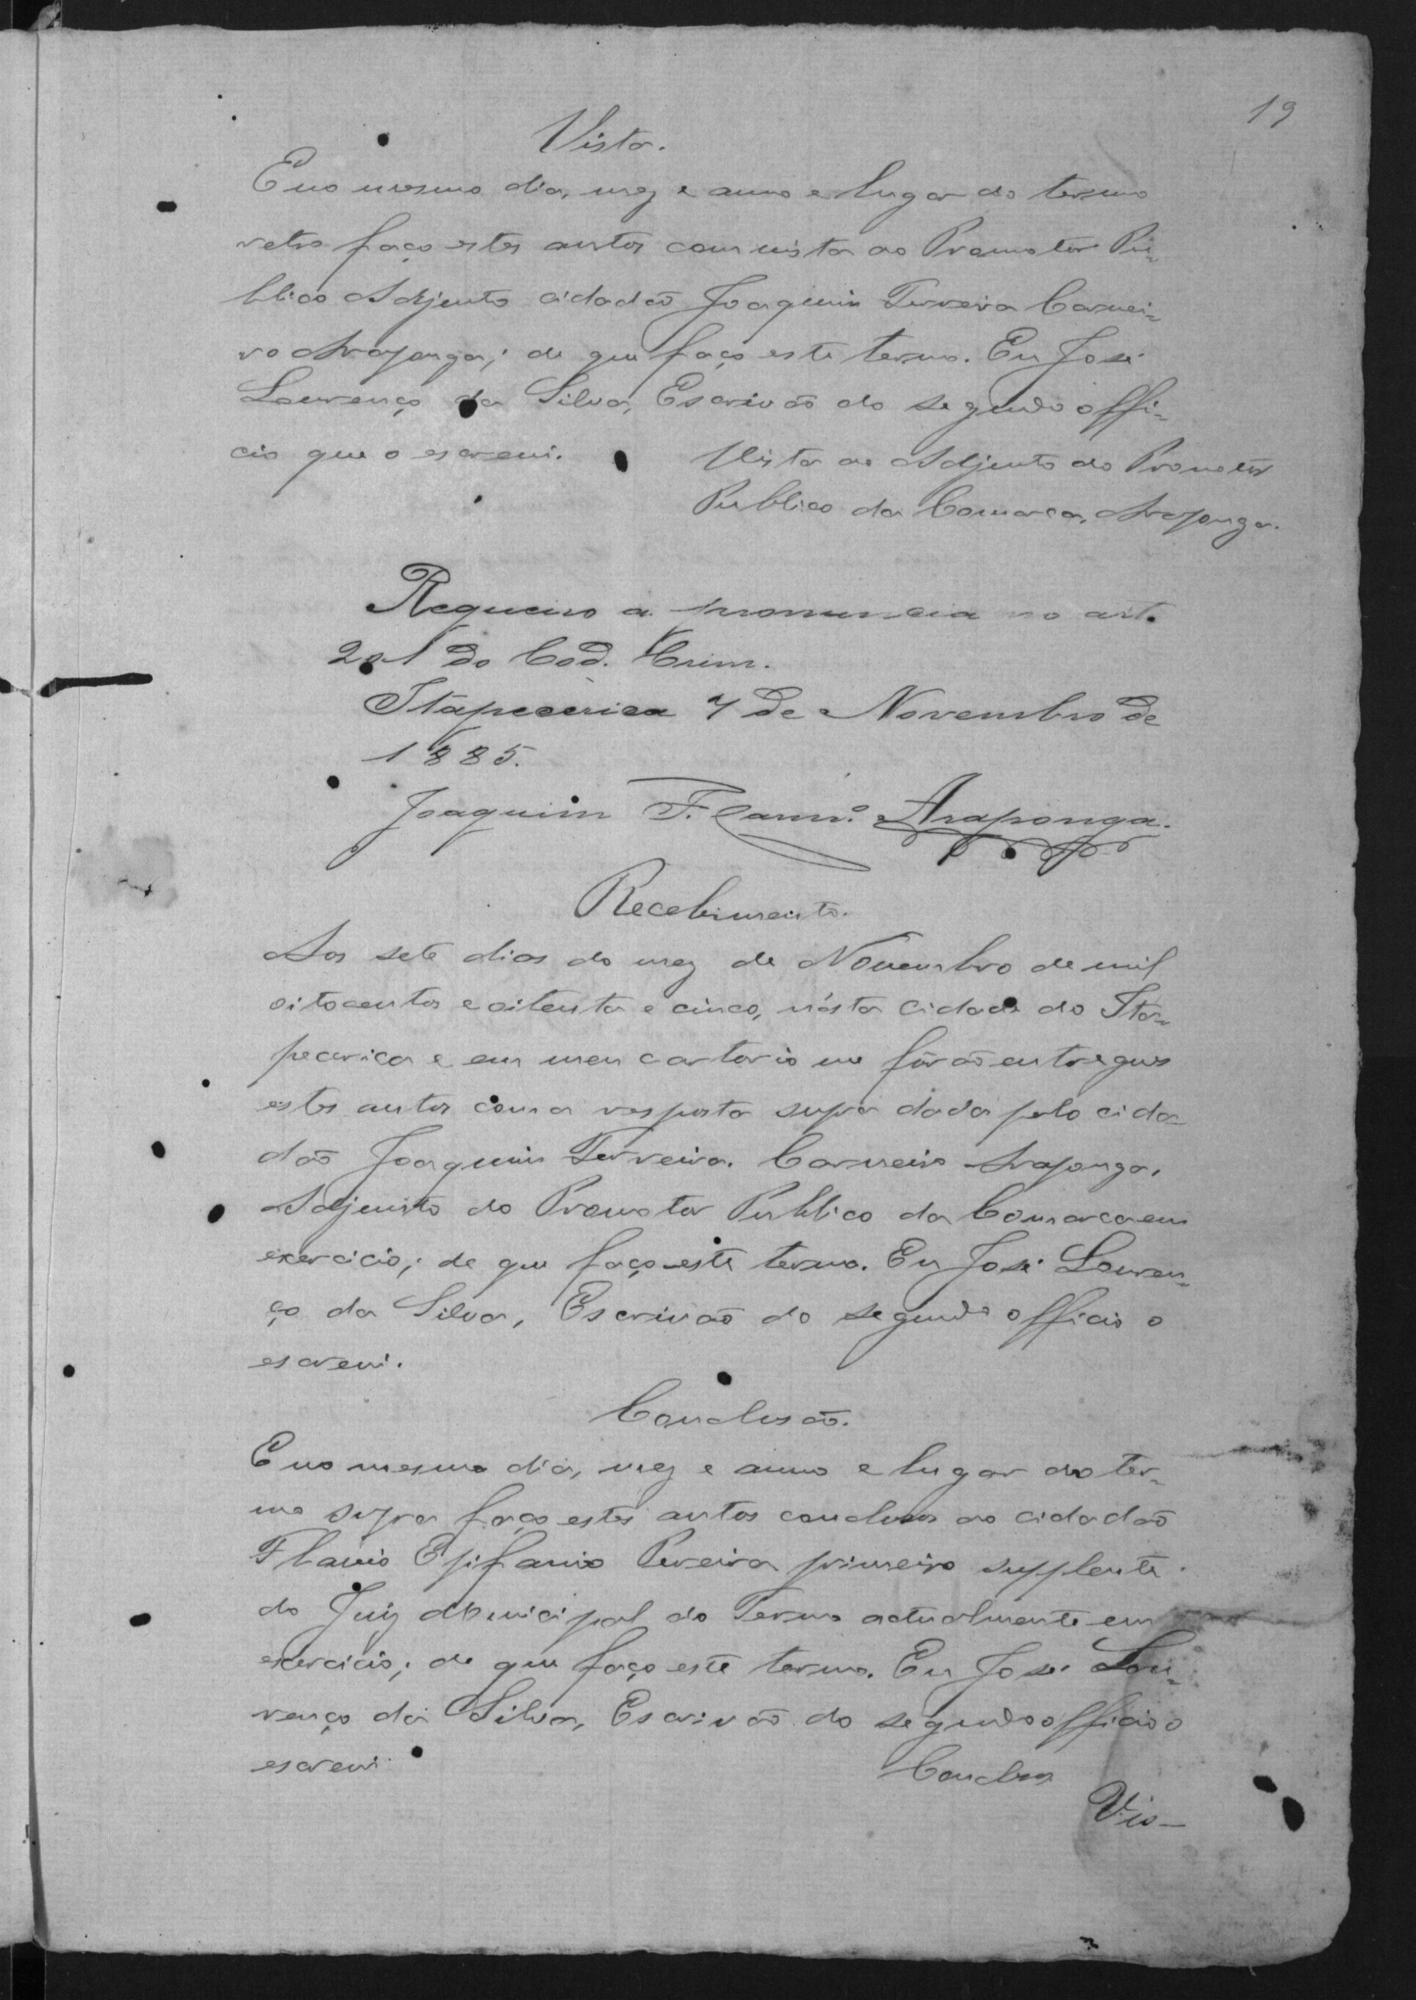 19
Vista.
E no mesmo dia, mez e anno e lugar do termo
retro faço estes autos com vista ao Promotor Pú-
blico Adjunto cidadão Joaquim Ferreira Carnei-
ro Araponga; de que faço este termo. Eu José
Lourenço da Silva, Escrivão do segundo offi-
cio que o escrevi.
Vista ao Adjunto do Promotor
Publico da Comarca, Araponga.
Requeiro a pronuncia no art.
201 do Cod. Crim.
Itapecerica 7 de Novembro de
1885.
Joaquim F. Carnrº. Araponga.
Recebimento.
Aos sete dias do mez de Novembro de mil
oitocentos e oitenta e cinco, nésta cidade do Ita-
pecerica e em meu cartorio me fôrão entregues
estes autos com a resposta supra dada pelo cida-
dão Joaquim Ferreira Carneiro Araponga,
Adjunto do Promotor Publico da Comarca em
exercicio; de que faço este termo. Eu José Louren-
ço da Silva, Escrivão do segundo officio o
escrevi.
Conclusão.
E no mesmo dia, mez e anno e lugar do ter-
mo supra faço estes autos conclusos ao cidadão
Flavio Epifanio Pereira primeiro supplente
do Juiz Municipal do Termo actualmente em
exercicio; de que faço este termo. Eu José Lou-
renço da Silva, Escrivão do segundo officio o
escrevi.
Conclusos
Vis-